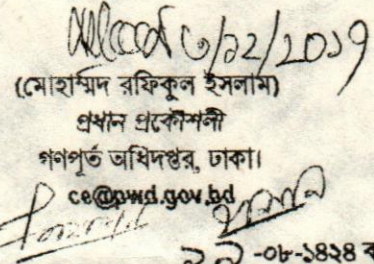 ৩/১২/২০১৭
(মোহাম্মদ রফিকুল ইসলাম)
প্রধান প্রকৌশলী
গণপূর্ত অধিদপ্তর, ঢাকা।
ce@pwd.gov.bd
-০৮-১৪২৪ ব